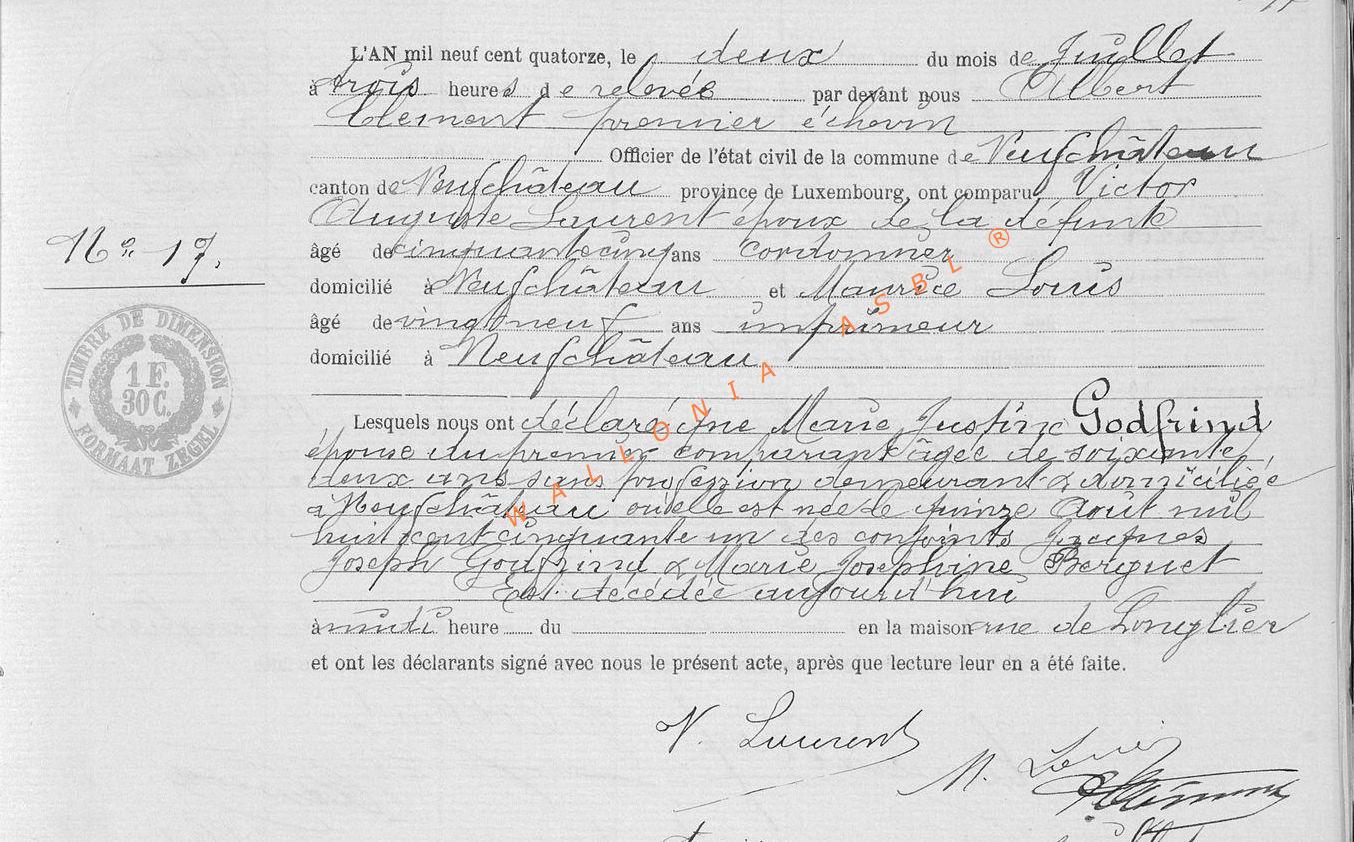 L'AN mil neuf cent quatorze, le deux du mois de Juillet
à trois heures de relevée par devant nous Albert
Clement premier échevin
Officier de l'état civil de la commune de Neufchâteau
canton de Neufchâteau province de Luxembourg, ont comparu Victor
Auguste Laurent époux de la défunte
âgé de cinquantecinq ans cordonnier
N° 17.
domicilié à Neufchâteau et Maurice Louis
âgé de vingtneuf ans imprimeur
domicilié à Neufchâteau
TIMBRE DE DIMENSION
1 F.
30 C.
FORMAAT ZEGEL
Lesquels nous ont déclaré que Marie Justine Godfrind
épouse du premier comparant âgée de soixante
deux ans sans profession demeurant & domiciliée
à Neufchâteau où elle est née le quinze Août mil
huit cent cinquante un des conjoints Jacques
Joseph Godfrind & Marie Josephine Berguet
Est décédée aujourd'hui
à midi heure du en la maison rue de Longlier
et ont les déclarants signé avec nous le présent acte, après que lecture leur en a été faite.
V. Laurent
M. Louis
WALLONIA ASBL ®